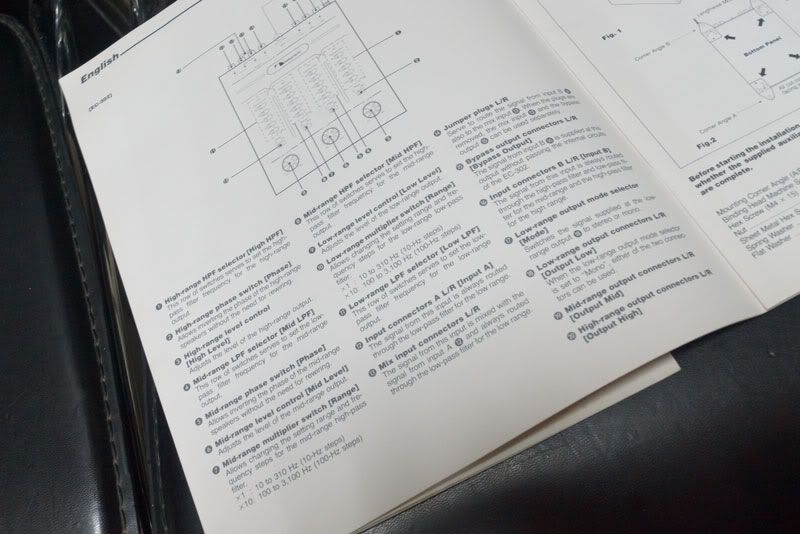 English
[EC-302]
❶ High-range HPF selector [High HPF]
This row of switches serves to set the high-
pass filter frequency for the high-range
output.
❷ High-range phase switch [Phase]
Allows inverting the phase of the high-range
speakers without the need for rewiring.
❸ High-range level control
[High Level]
Adjusts the level of the high-range output.
❹ Mid-range LPF selector [Mid LPF]
This row of switches serves to set the low-
pass filter frequency for the mid-range
output.
❺ Mid-range phase switch [Phase]
Allows inverting the phase of the mid-range
speakers without the need for rewiring.
❻ Mid-range level control [Mid Level]
Adjusts the level of the mid-range output.
❼ Mid-range multiplier switch [Range]
Allows changing the setting range and fre-
quency steps for the mid-range high-pass
filter.
×1: 10 to 310 Hz (10-Hz steps)
×10: 100 to 3,100 Hz (100-Hz steps)
❽ Mid-range HPF selector [Mid HPF]
This row of switches serves to set the high-
pass filter frequency for the mid-range
output.
❾ Low-range level control [Low Level]
Adjusts the level of the low-range output.
❿ Low-range multiplier switch [Range]
Allows changing the setting range and fre-
quency steps for the low-range low-pass
filter.
×1: 10 to 310 Hz (10-Hz steps)
×10: 100 to 3,100 Hz (100-Hz steps)
⓫ Low-range LPF selector [Low LPF]
This row of switches serves to set the low-
pass filter frequency for the low-range
output.
⓬ Input connectors A L/R [Input A]
The signal from this input is always routed
through the low-pass filter for the low range.
⓭ Mix input connectors L/R
The signal from this input is mixed with the
signal from input A ⓬ and always routed
through the low-pass filter for the low range.
Jumper plugs L/R
Serve to route the signal from input B
also to the mix input ⓭. When the plugs are
removed, the mix input ⓭ and the bypass
output can be used separately.
Bypass output connectors L/R
[Bypass Output]
The signal from input B is supplied at this
output without passing the internal circuits
of the EC-302.
Input connectors B L/R [Input B]
The signal from this input is always routed
through the high-pass filter and low-pass fil-
ter for the mid-range and the high-pass filter
for the high range.
Low-range output mode selector
[Mode]
Switches the signal supplied at the low-
range output to stereo or mono.
Low-range output connectors L/R
[Output Low]
When the low-range output mode selector
is set to "Mono", either of the two connec-
tors can be used.
Mid-range output connectors L/R
[Output Mid]
High-range output connectors L/R
[Output High]
Fig. 1
Corner Angle B
Bottom Panel
Corner Angle A
Fig.2
Before starting the installation
whether the supplied auxilia
are complete.
Mounting Corner Angle (A/
Binding Head Machine S
Hex Screw (M4 × 15)
Nut
Sheet Metal Hex
Spring Washer
Flat Washer